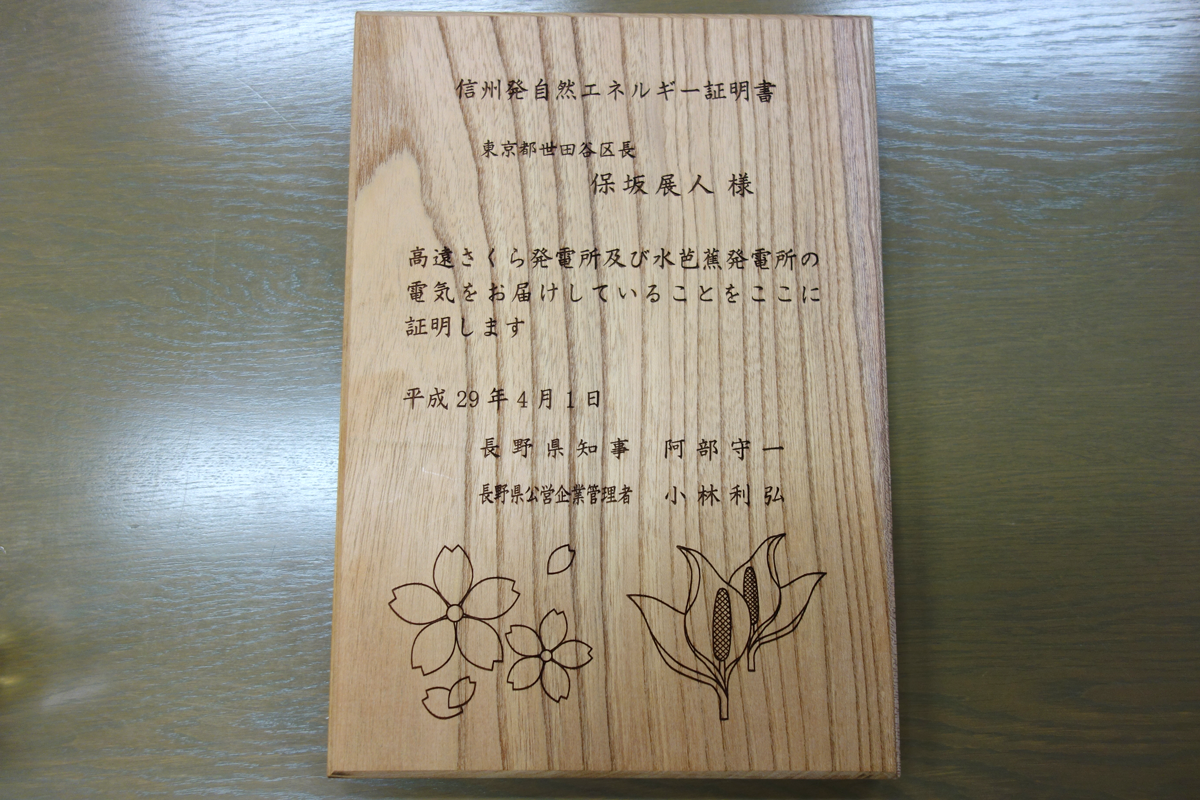 信州発自然エネルギー証明書
東京都世田谷区長
保坂展人 様
高遠さくら発電所及び水芭蕉発電所の
電気をお届けしていることをここに
証明します
平成29年4月1日
長野県知事 阿部守一
長野県公営企業管理者 小林利弘